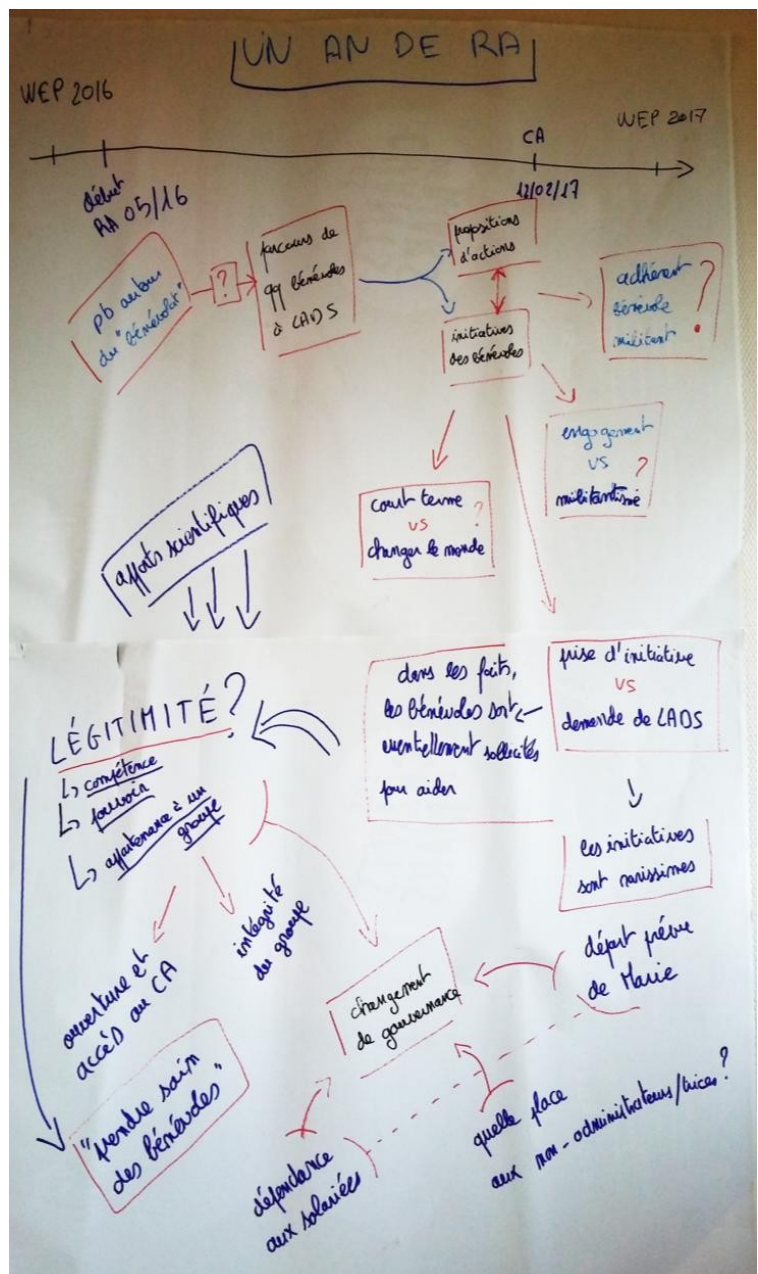 UN AN DE RA
WEP 2016
WEP 2017
CA
12/02/17
début
RA 05/16
pb autour
du "bénévolat"
?
parcours de
qq bénévoles
à LADS
propositions
d'actions
initiatives
des bénévoles
adhérent
bénévole
militant
?
engagement
VS
militantisme
?
court terme
VS
changer le monde
?
apports scientifiques
prise d'initiative
VS
demande de LADS
dans les faits,
les bénévoles sont
essentiellement sollicités
pour aider
les initiatives
sont rarissimes
LÉGITIMITÉ ?
↳ compétence
↳ pouvoir
↳ appartenance à un
groupe
ouverture et
accès au CA
intégrité
du groupe
changement
de gouvernance
départ prévu
de Marie
"prendre soin
des bénévoles"
dépendance
aux salariées
quelle place
aux non-administrateurs/trices ?